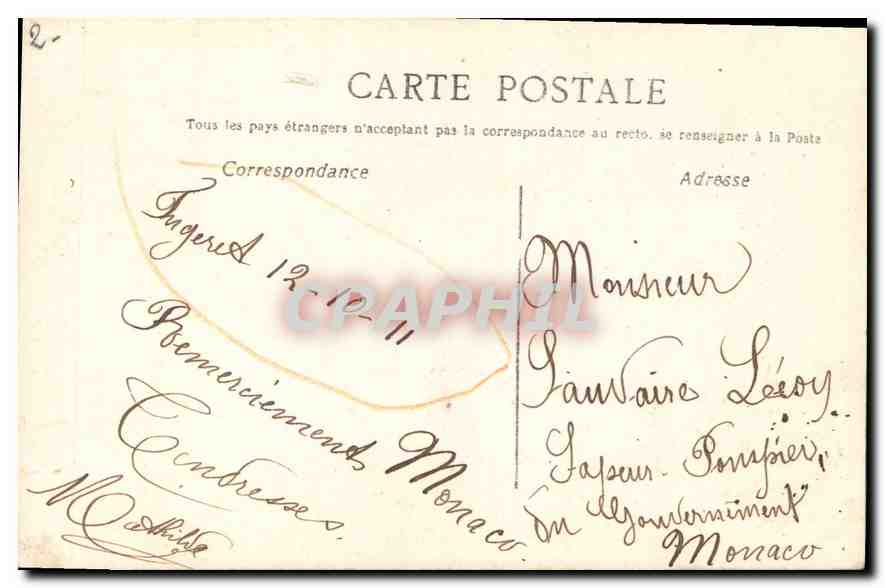 2-
CARTE POSTALE
Tous les pays étrangers n'acceptant pas la correspondance au recto, se renseigner à la Poste
Correspondance
Fugeret 12-10-11
Remerciements Monaco
Tendresses.
Mathilde
Adresse
Monsieur
Sauvaire Lécoy
Sapeur-Pompier,
du Gouvernement
Monaco
CPAPHIL